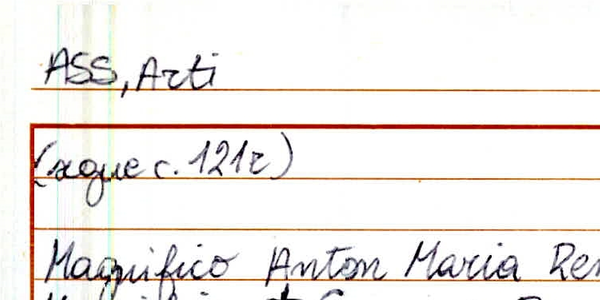 ASS, Arti
(segue c. 121r)
Magnifico Anton Maria